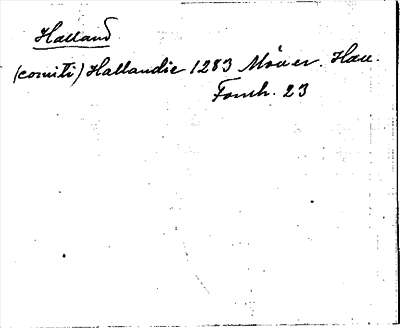 Halland
(comiti) Hallandie 1283 Möller. Hall.
Fornh. 23